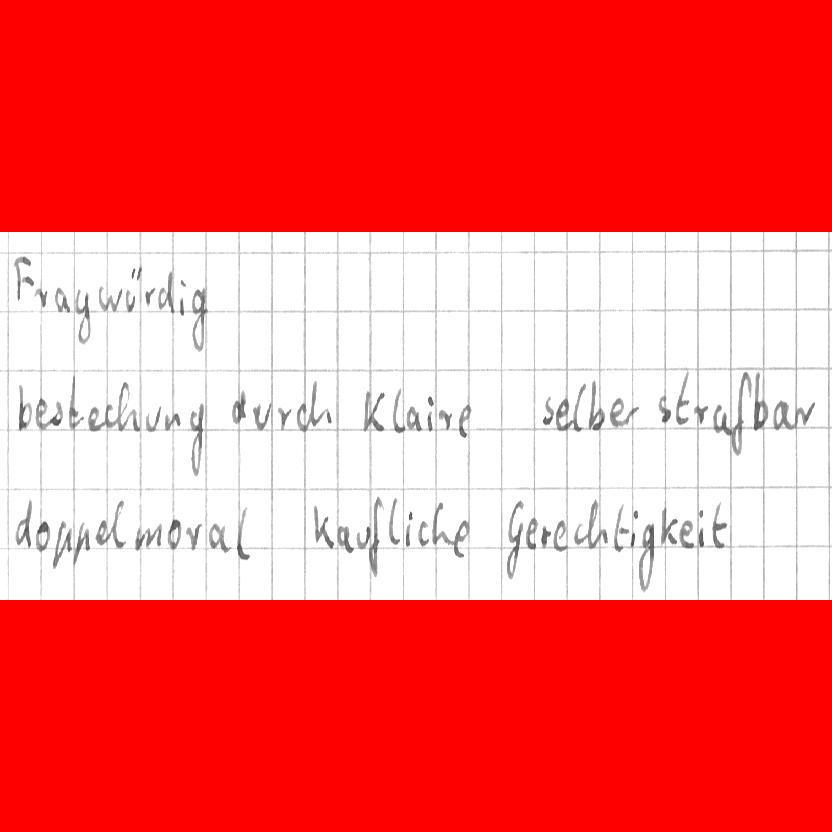 Fragwürdig
bestechung durch Klaire selber strafbar
doppelmoral kaufliche Gerechtigkeit